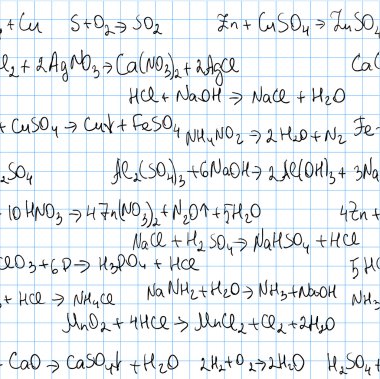 + Cu S+O₂→SO₂ Zn + CuSO₄ → ZnSO₄
l₂ + 2AgNO₃→Ca(NO₃)₂+2AgCl Ca(
HCl + NaOH → NaCl + H₂O
+ CuSO₄ → Cu↓ + FeSO₄ NH₄NO₂→2H₂O+N₂ Fe
₂SO₄ Al₂(SO₄)₃+6NaOH→2Al(OH)₃ + 3Na
10HNO₃→4Zn(NO₃)₂+N₂O↑+5H₂O 4Zn +
NaCl + H₂SO₄→NaHSO₄ + HCl
ClO₃+6P→H₃PO₄ + HCl 5HC
+ HCl → NH₄Cl NaNH₂+H₂O→NH₃+NaOH NH₃
MnO₂ + 4HCl → MnCl₂+Cl₂+2H₂O
+ CaO→CaSO₄↓ + H₂O 2H₂+O₂→2H₂O H₂SO₄+